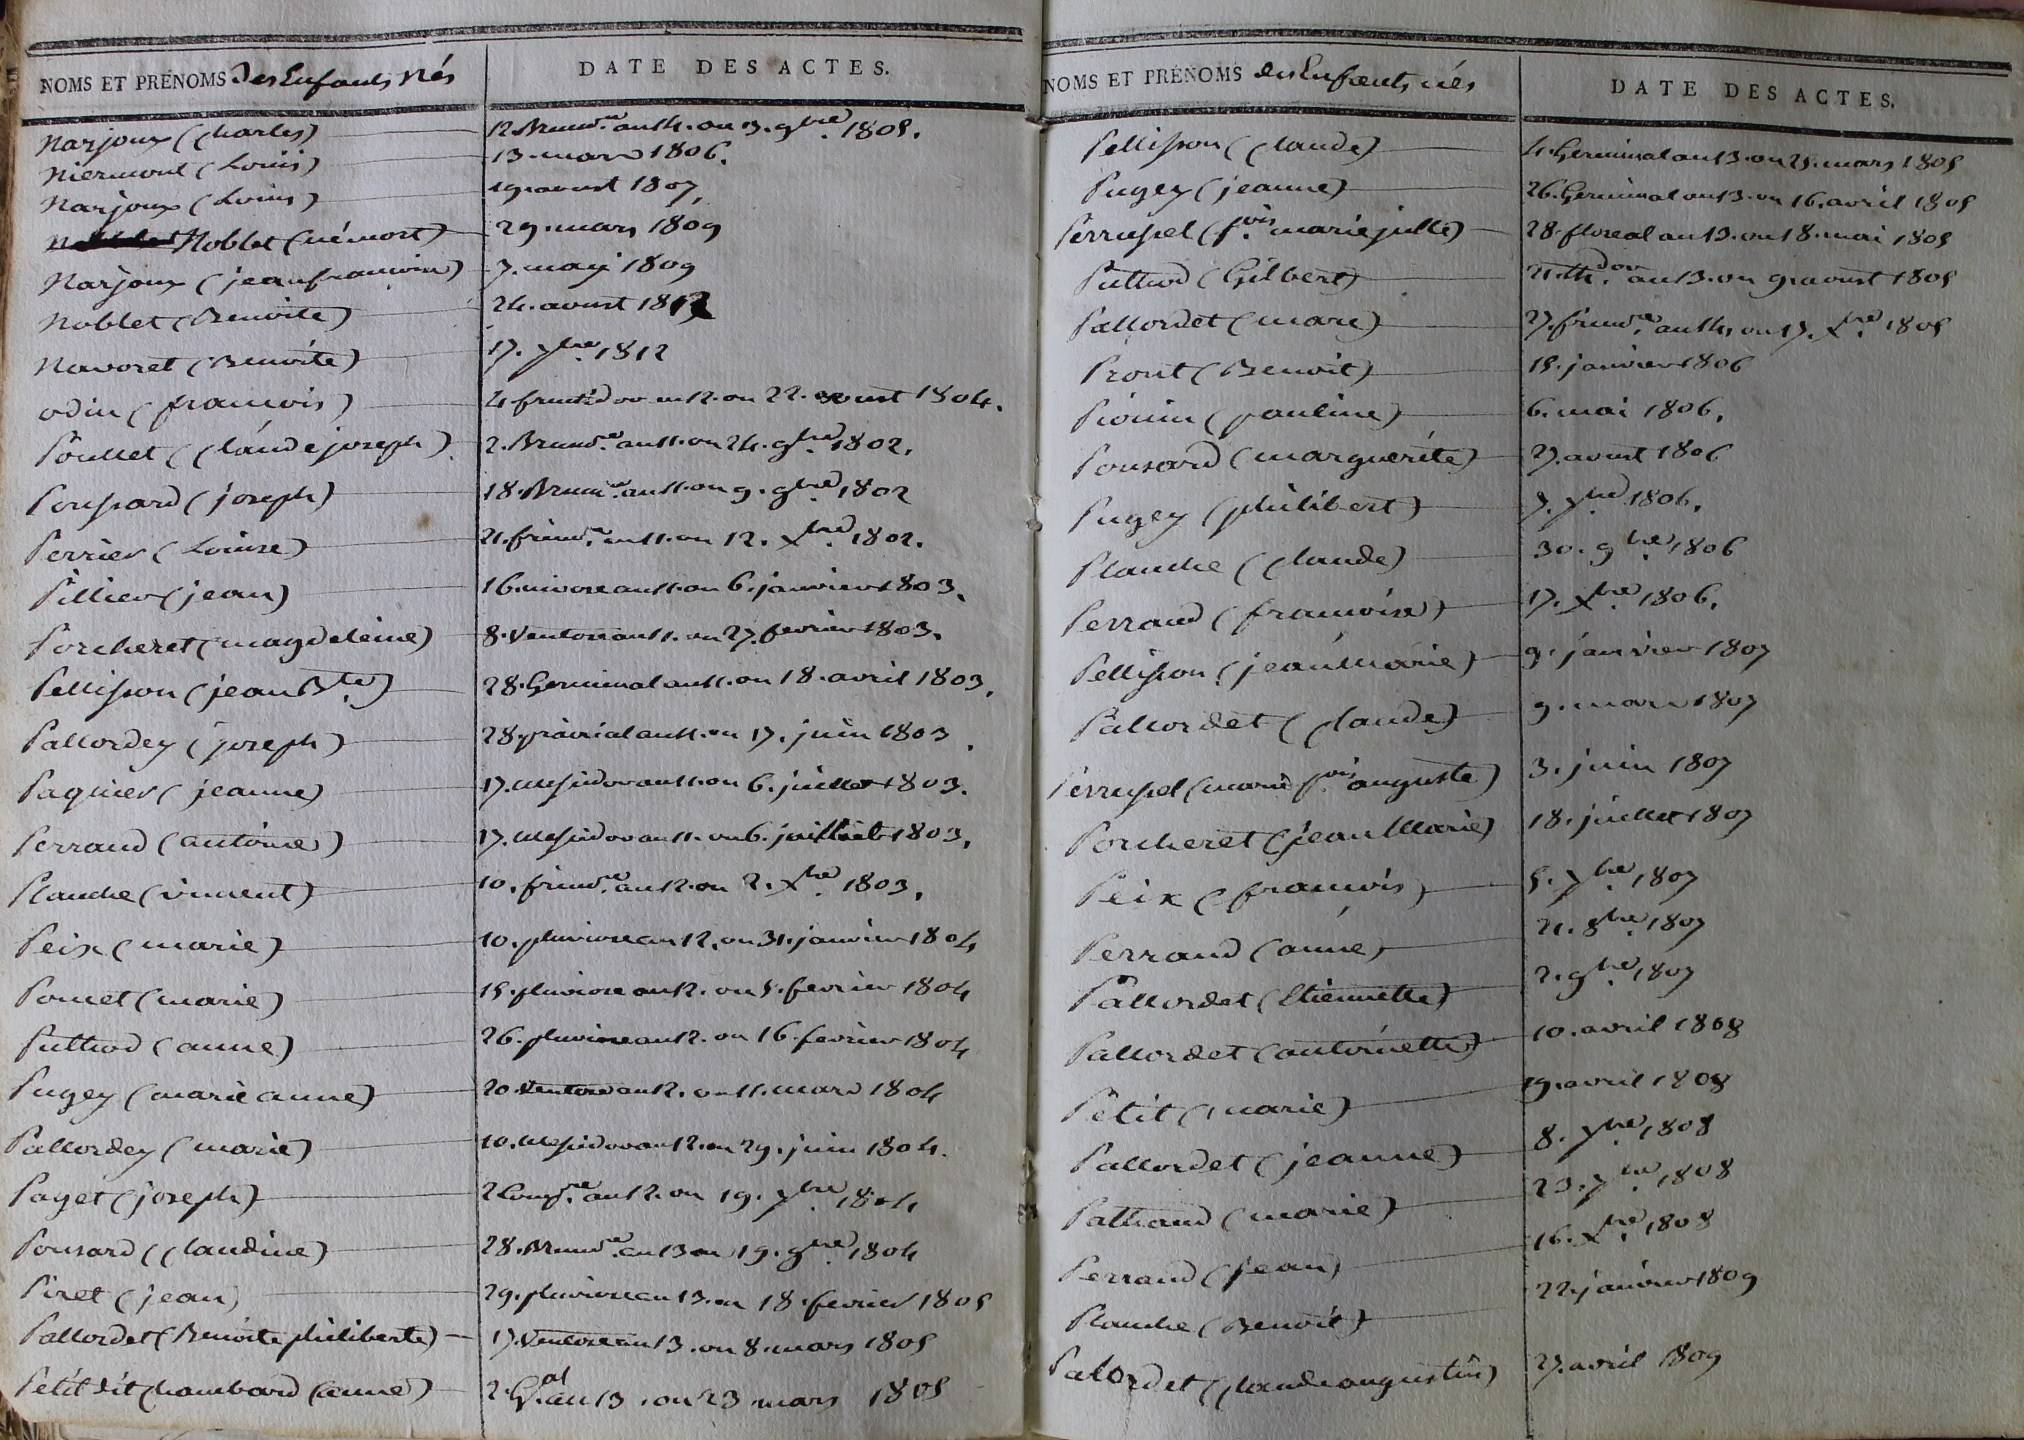 NOMS ET PRÉNOMS des Enfants Nés DATE DES ACTES.
Narjoux (Charles) 12. Brumre. an 14. ou 3. 9bre. 1805.
Niermont (Louis) 13. mars 1806.
Narjoux (Louis) 19. aoust 1807,
Noblet (némort) 29. mars 1809
Narjoux (jean francoise) 7. maji 1809
Noblet (Benoite) 24. aoust 1812
Navoret (Benoite) 17. 7bre. 1812
odin (francois) 4 fructidor an 12. ou 22. aoust 1804.
Poullet (Claude joseph) 2. Brumre. an 11. ou 24. 9bre. 1802.
Poussard (joseph) 18. Brumre. an 11. ou 9. 9bre. 1802
Perrier (Louise) 21. frimre. an 11. ou 12. Xbre. 1802.
Pillier (jean) 16. nivose an 11. ou 6. janvier 1803.
Porcheret (magdeleine) 8. Ventose an 11. ou 27. fevrier 1803.
Pellisson (jean Bte.) 28. Germinal an 11. ou 18. avril 1803.
Pallordey (joseph) 28. prairial an 11. ou 17. juin 1803.
Paquier (jeanne) 17. Messidor an 11. ou 6. juillet 1803.
Perraud (antoine) 17. Messidor an 11. ou 6. juillet 1803.
Planche (vincent) 10. frimre. an 12. ou 2. Xbre. 1803.
Peix (marie) 10. pluviose an 12. ou 31. janvier 1804
Poncet (marie) 15. pluviose an 12. ou 5. fevrier 1804
Puthod (anne) 26. pluviose an 12. ou 16. fevrier 1804
Pugey (marie anne) 20. Ventose an 12. ou 11. mars 1804
Pallordey (marie) 10. Messidor an 12. ou 29. juin 1804.
Paget (joseph) 2 Compre. an 12. ou 19. 7bre. 1804
Ponsard (Claudine) 28. Brumre. an 13 ou 19. 9bre. 1804
Piret (jean) 29. pluviose an 13. ou 18. fevrier 1805
Pallordet (Benoite philiberte) 17. Ventose an 13. ou 8. mars 1805
Petit dit Chambard (anne) 2. Gal. an 13. ou 23 mars 1805
NOMS ET PRÉNOMS des Enfants nés DATE DES ACTES.
Pellisson (Claude) 4. Germinal an 13. ou 25. mars 1805
Pugey (jeanne) 26. Germinal an 13. ou 16. avril 1805
Perrussel (fois. marie julle) 28. floreal an 13. ou 18. mai 1805
Puthod (Gilbert) 21. th.dor an 13. ou 9. aoust 1805
Pallordet (marc) 27. frimre. an 14. ou 17. Xbre. 1805
Prout (Benoit) 15. janvier 1806
Piouin (pauline) 6. mai 1806.
Ponsard (marguerite) 27. aoust 1806
Pugey (philibert) 7. 7bre. 1806.
Planche (Claude) 30. 9bre. 1806
Perraud (francoise) 17. Xbre. 1806.
Pellisson (jean Marie) 9. janvier 1807
Pallordet (Claude) 9. mars 1807
Perrussel (marie fois. auguste) 3. juin 1807
Porcheret (jean Marie) 18. juillet 1807
Peix (francois) 5. 7bre. 1807
Perraud (anne) 21. 8bre. 1807
Pallordet (Etiennette) 2. 9bre. 1807
Pallordet (antoinette) 10. avril 1808
Petit (marie) 19. avril 1808
Pallordet (jeanne) 8. 7bre. 1808
Pathaud (marie) 23. 7bre. 1808
Perraud (jean) 16. Xbre. 1808
Planche (Benoit) 22. janvier 1809
Palordet (Claude augustin) 27. avril 1809